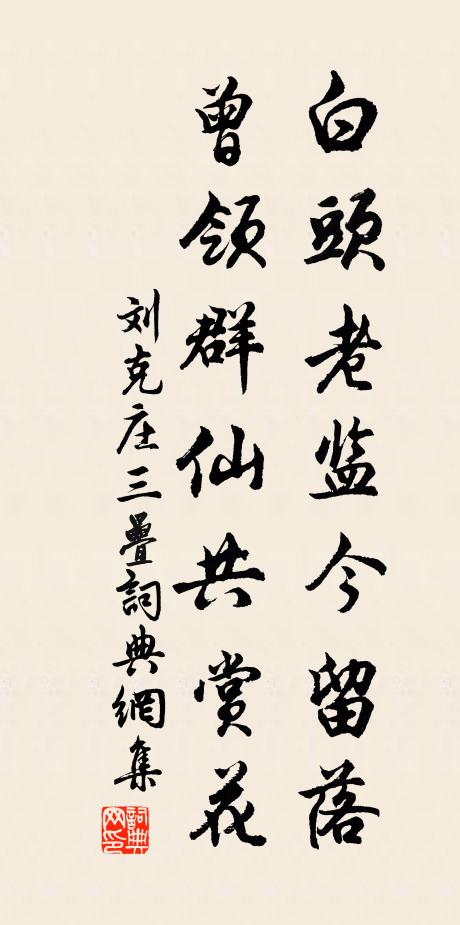 白頭老监今留落
曾领群仙共赏花
刘克庄三疊詞典網集
詞典網印